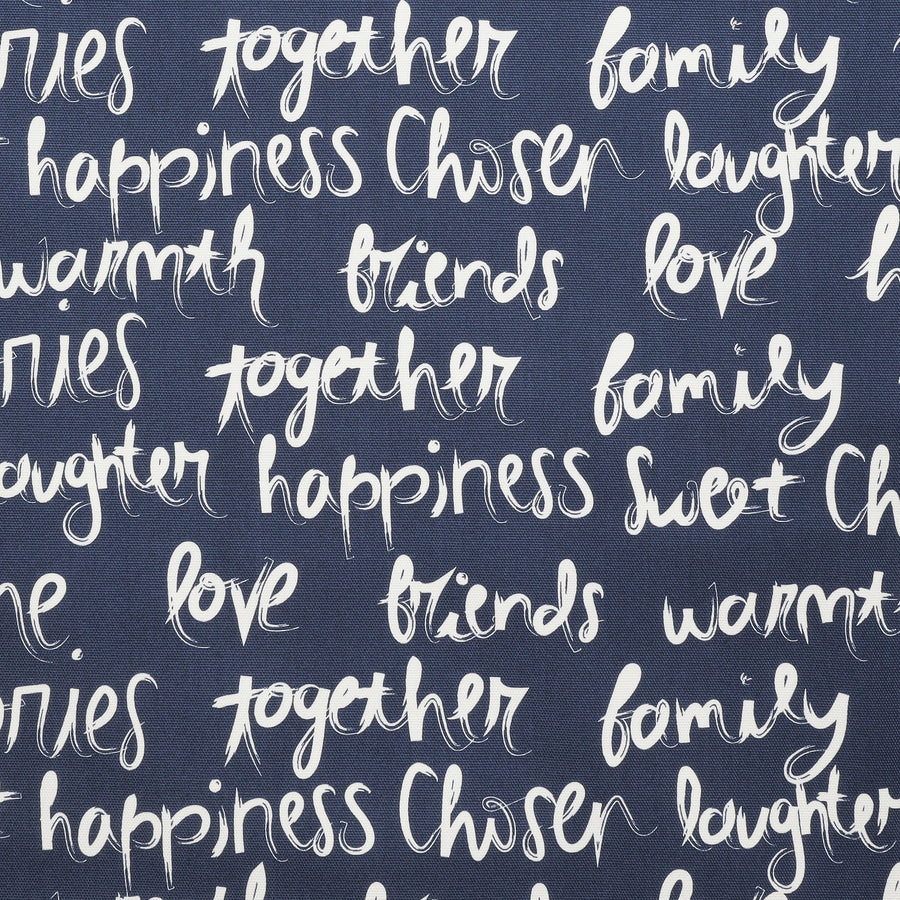 ries together family
happiness Chosen laughter
warmth friends love h
ries together family
aughter happiness Sweet Ch
me love friends warmt
ries together family
happiness Chosen laughter